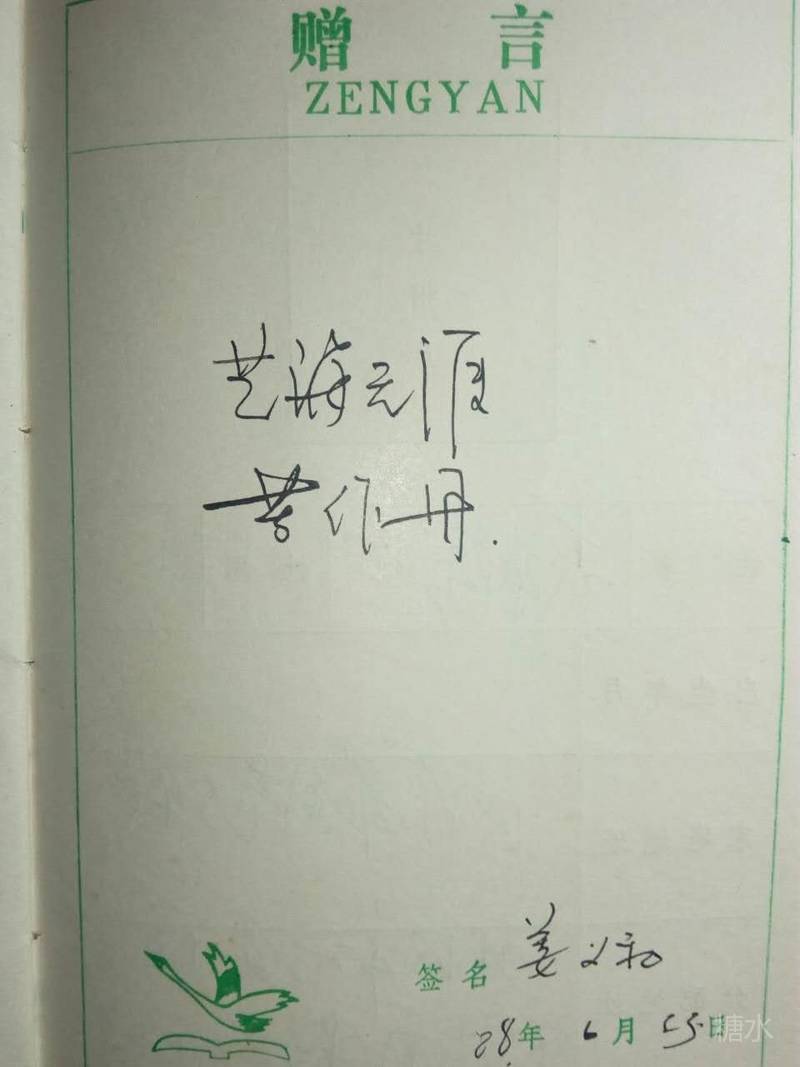 赠言
ZENGYAN
艺海无涯
苦作舟.
签名 姜
88年 6月 25日
糖水